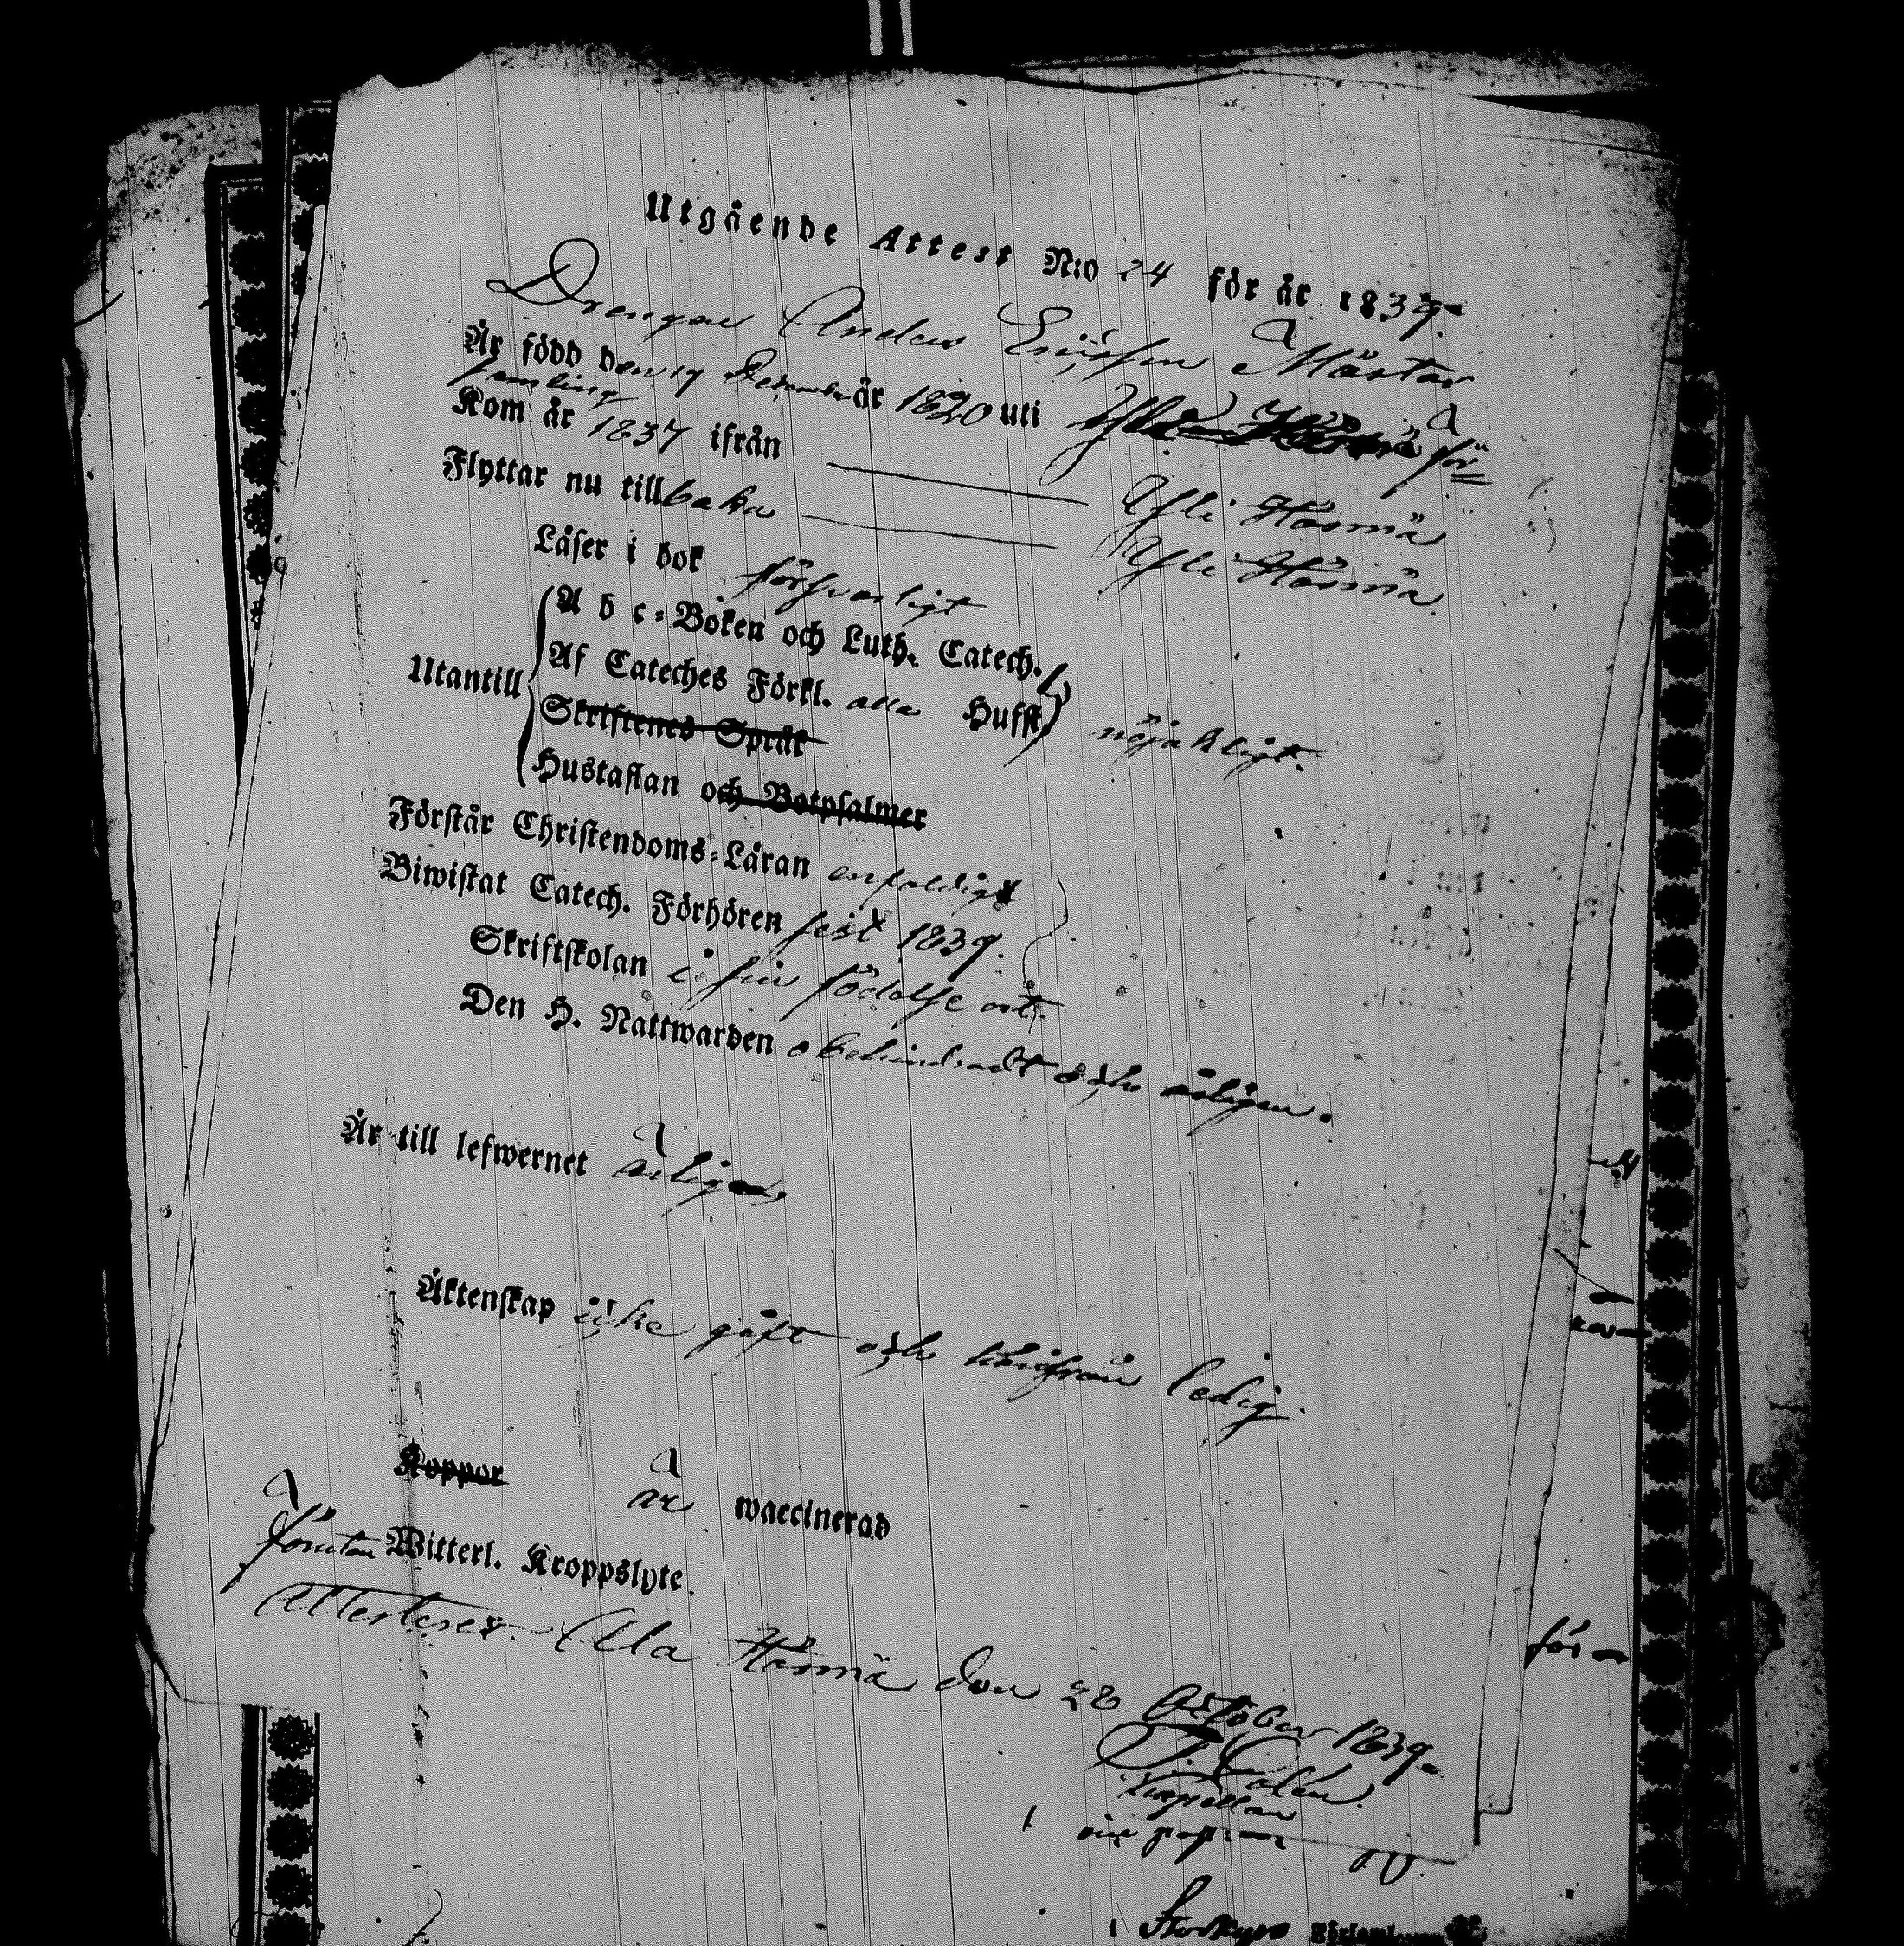 Utgående Attest N:o 24 för år 1839.
Drengen Anders Ericsson Mårtas
Är född den 19 December år 1820 uti Yfle Härmä för
samling
Kom år 1837 ifrån Yfle Härmä
Flyttar nu tillbaka Yfle Härmä.
Läser i bok försvarligt
A b c-Boken och Luth. Catech.
Utantill Af Cateches Förkl. alla Hufst. nöjaktigt.
Skriftenes Språk
Hustaflan och Botpsalmer
Förstår Christendoms-Läran enfaldigt
Biwistat Catech. Förhören sist 1839.
Skriftskolan i sin födelse ort.
Den H. Nattwarden obehindradt och årligen.
Är till lefwernet ärligen
Äktenskap icke gift och härifrån ledig.
Koppor är waccinerad
Förutan Witterl. Kroppslyte.
Attesteras. Ala Härmä den 28 October 1839.
Kapellan
vice pastor
i Storkyro
för